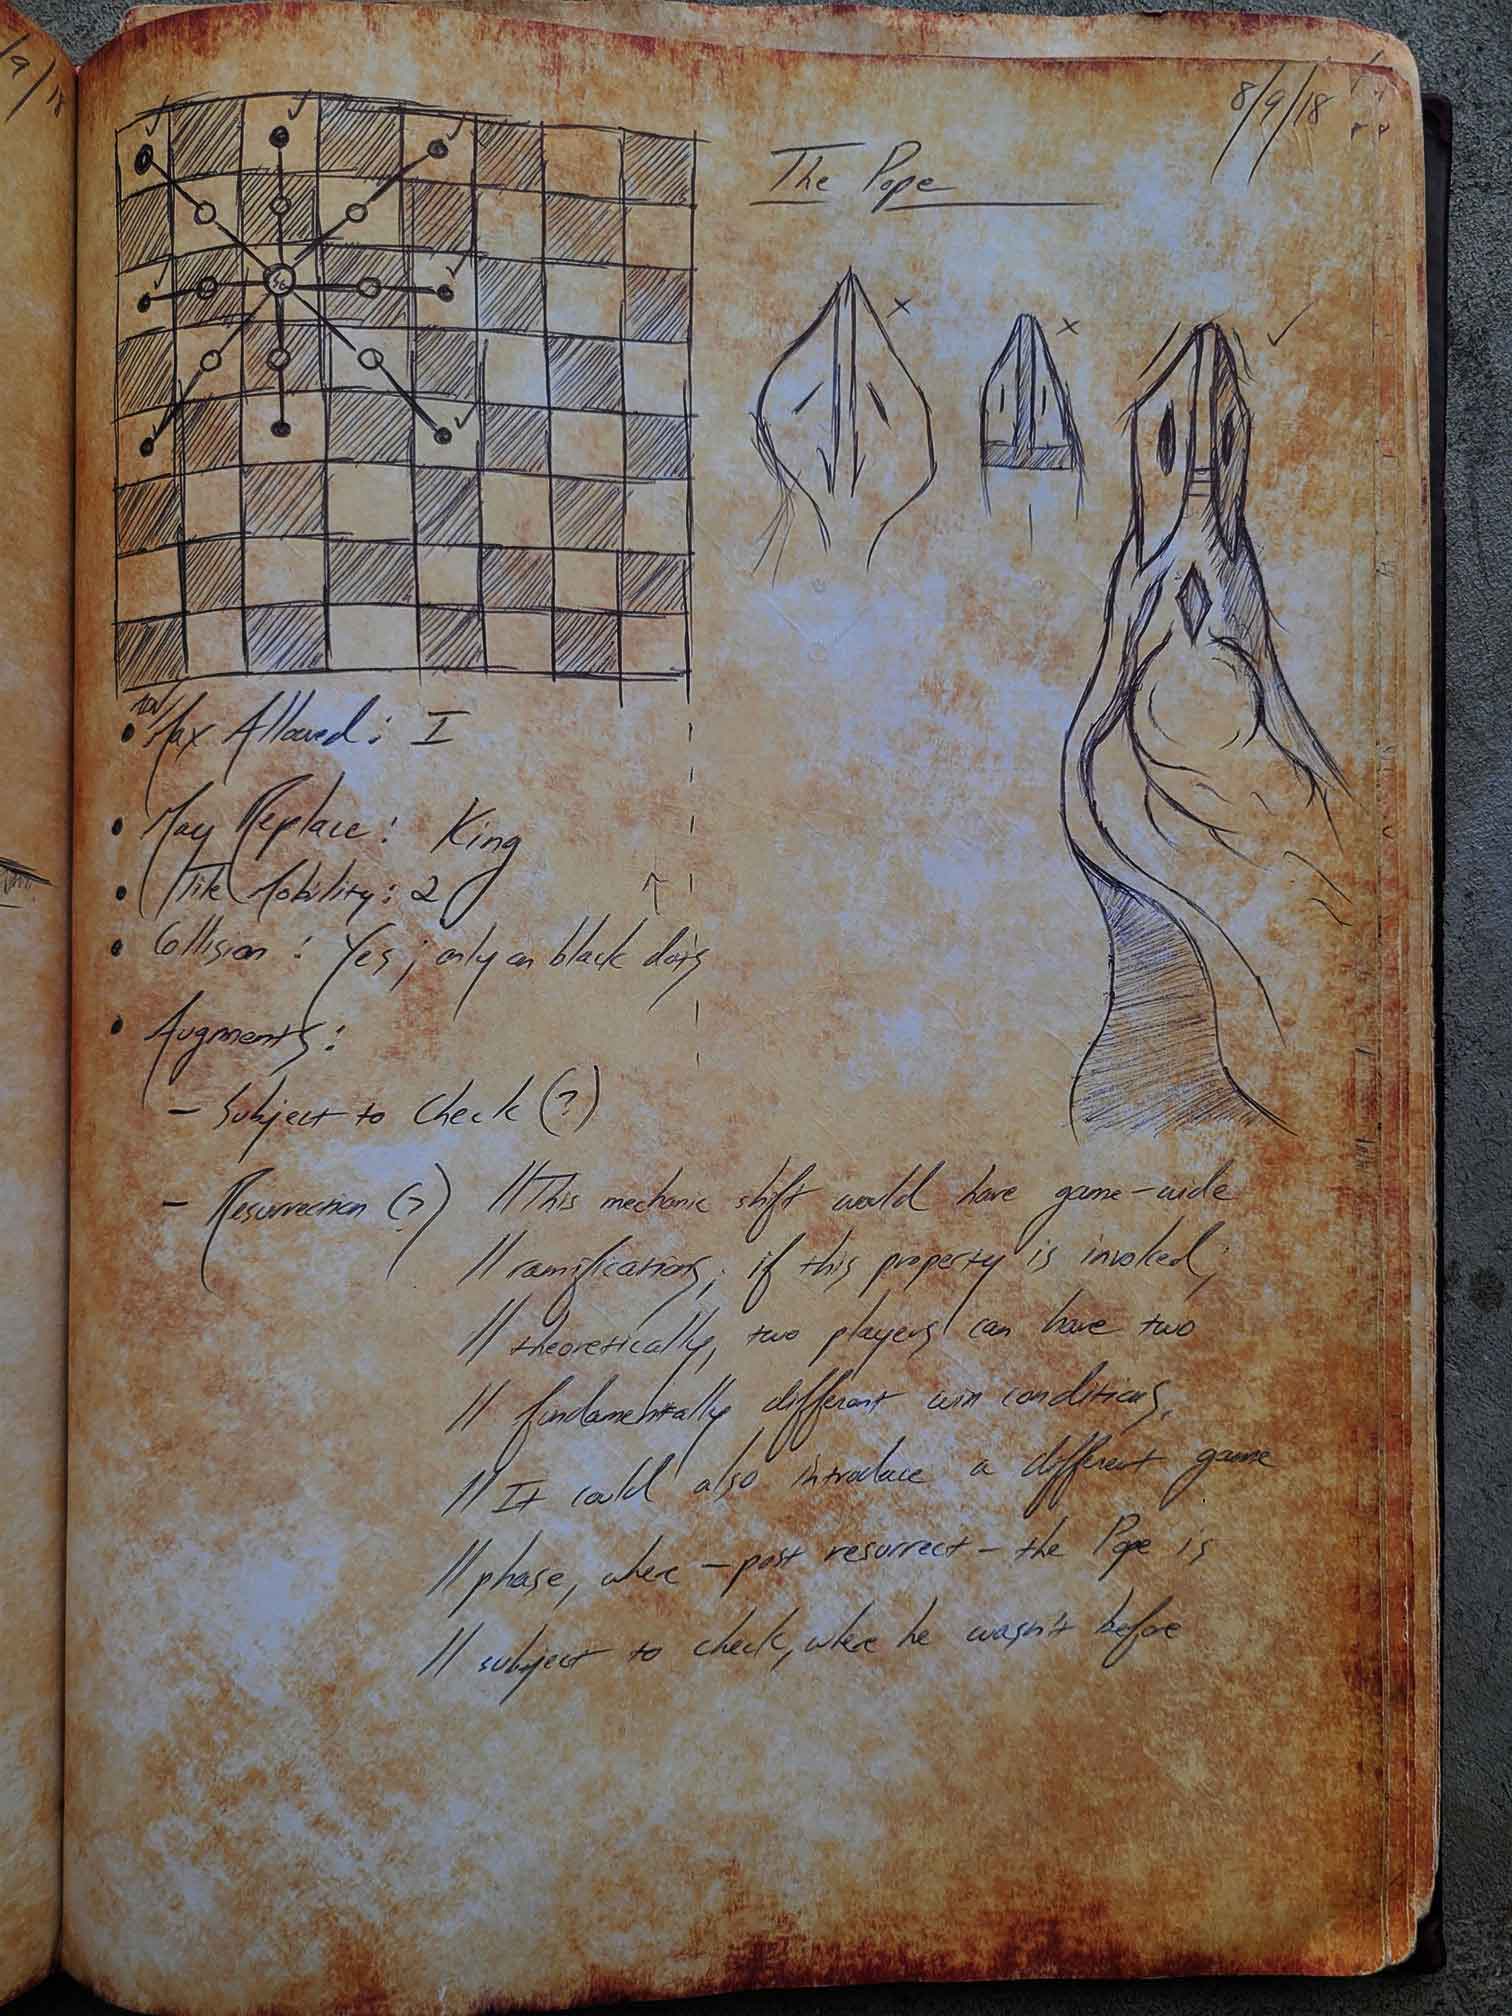 8/9/18
The Pope
Max Allowed: I
May Replace: King
Tile Mobility: 2
Collision: Yes; only on black dots
Augments:
- Subject to Check (?)
- Resurrection (?) // This mechanic shift would have game-wide
// ramifications; if this property is invoked,
// theoretically, two players can have two
// fundamentally different win conditions.
// It could also introduce a different game
// phase, where - post resurrect - the Pope is
// subject to check, where he wasn't before